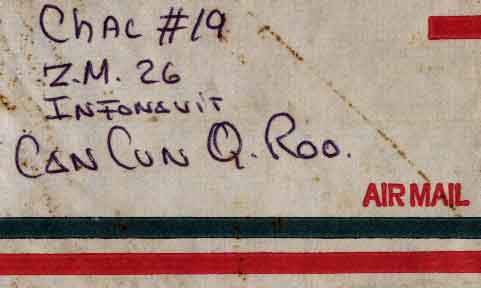 Chac #19
Z.M. 26
Infonavit
Can Cun Q. Roo.
AIR MAIL